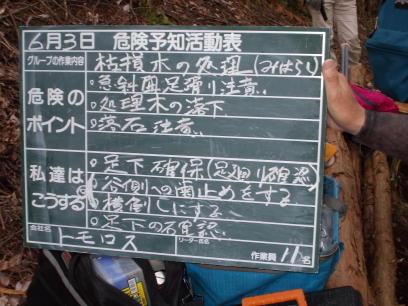 6月3日 危険予知活動表
グループの作業内容 枯損木の処理(みはらし)
危険の
ポイント
。急斜面足滑り注意。
。処理木の落下
。落石注意。
私達は
こうする
。足下確保(足廻り確認)
谷側への歯止めをする
横倒しにする
。足下の石確認。
会社名 トモロス リーダー氏名 作業員 11名